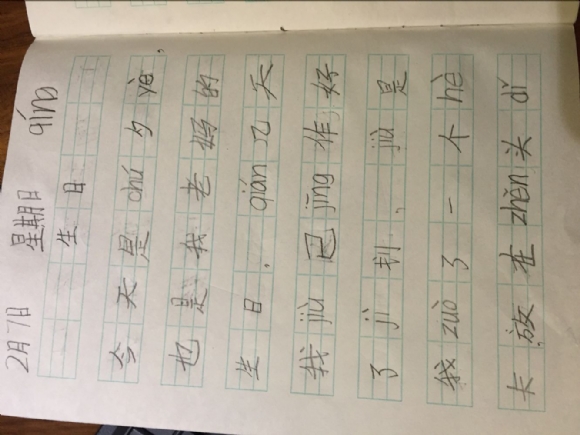 2月7日 星期日 qíng
生日
今天是chú夕yè，
也是我老妈的
生日。qián几天
我jiù已jīng作好
了jì划，jiù是
我zuò了一个hè
卡放在zhěn头dǐ